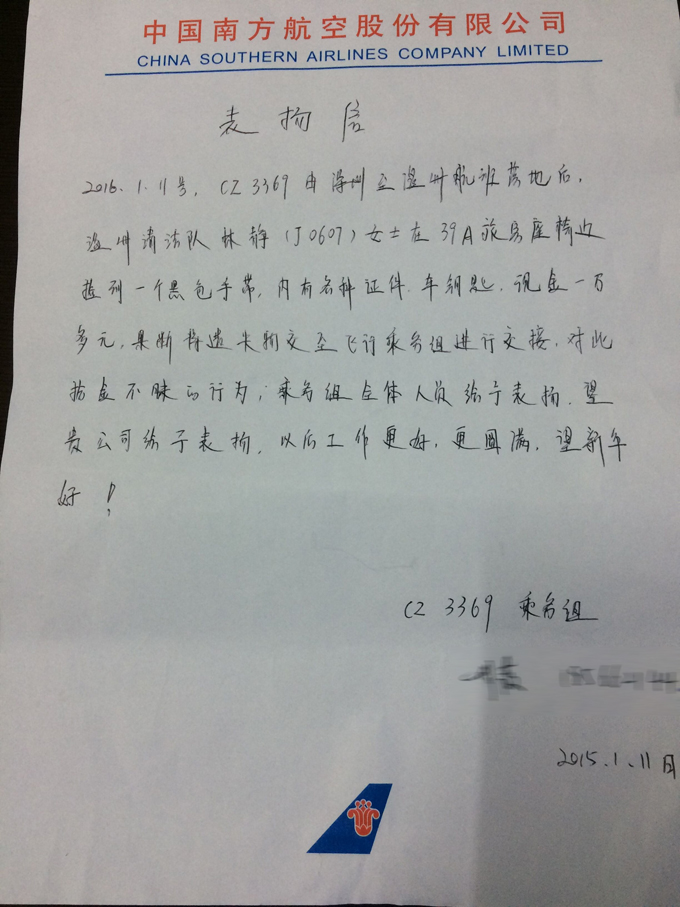 中国南方航空股份有限公司
CHINA SOUTHERN AIRLINES COMPANY LIMITED
表扬信
2016.1.11号，CZ3369由深圳至温州航班落地后，
温州清洁队林静（J0607）女士在39A旅客座椅边
捡到一个黑色手带，内有各种证件、车钥匙、现金一万
多元，果断将遗失物交至飞行乘务组进行交接，对此
拾金不昧的行为，乘务组全体人员给予表扬，望
贵公司给予表扬，以后工作更好，更圆满，望新年
好！
CZ 3369 乘务组
2015.1.11日